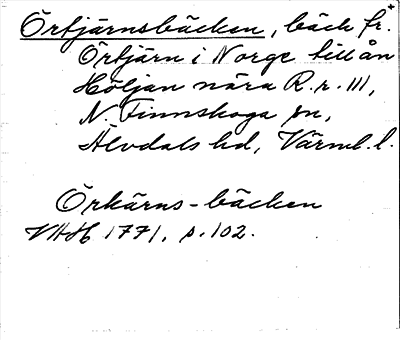 Örtjärnsbäcken, bäck fr.*
Örtjärn i Norge till ån
Höljan nära R.r. 111,
N. Finnskoga sn,
Älvdals hd, Värml. l.
Örkärns-bäcken
VAH 1771, s. 102.